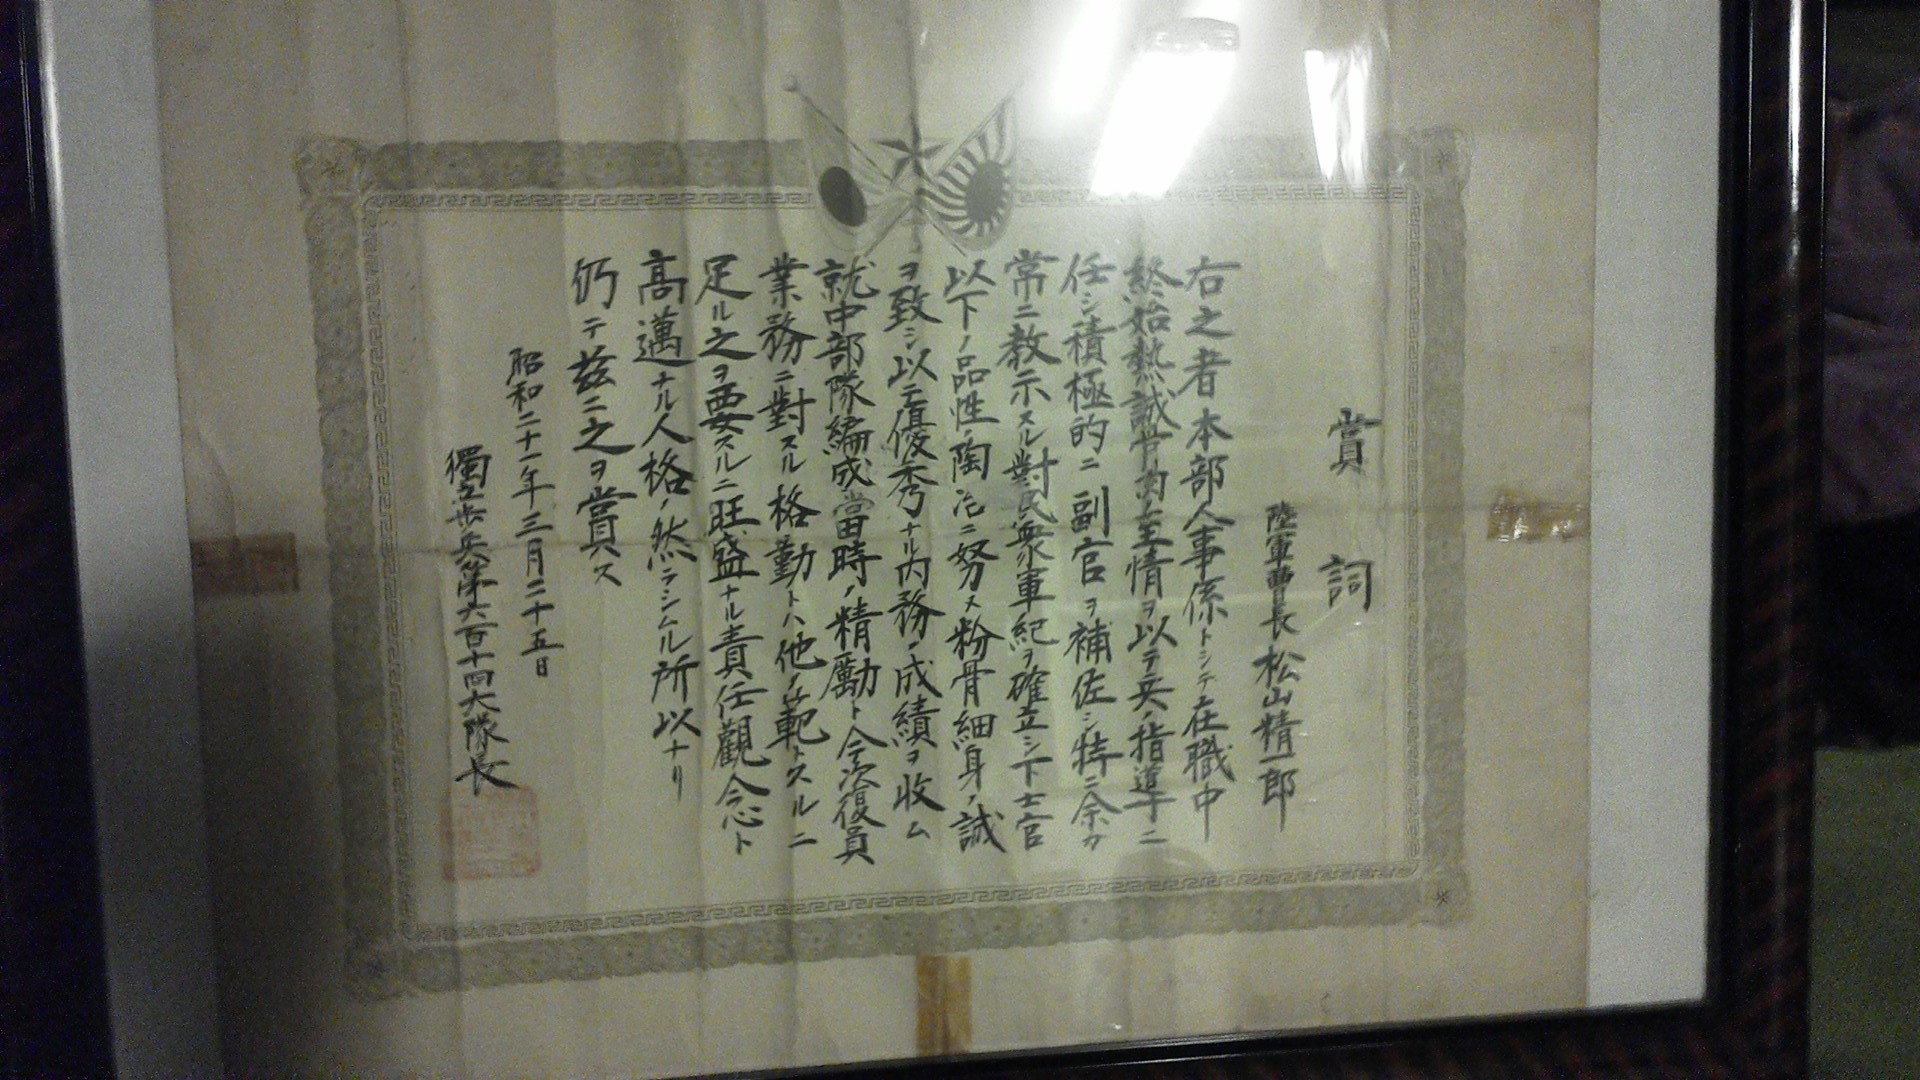 賞詞
陸軍曹長 松山精一郎
右之者本部人事係トシテ在職中
終始熱誠至情ヲ以テ兵ノ指導ニ
任シ積極的ニ副官ヲ補佐シ特ニ余カ
常ニ教示スル對民衆軍紀ヲ確立シ下士官
以下ノ品性ノ陶冶ニ努ス粉骨細身ノ誠
ヲ致シ以テ優秀ナル内務ノ成績ヲ收ム
就中部隊編成當時ノ精勵ト今次復員
業務ニ對スル格勤トハ他ノ範トスルニ
足ル之ヲ要スルニ旺盛ナル責任觀念ト
高邁ナル人格ノ然ラシムル所以ナリ
仍テ茲ニ之ヲ賞ス
昭和二十一年三月二十五日
獨立歩兵第六百十四大隊長